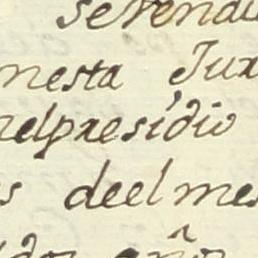 serendi
mesta Jux
nelpresidio
s deelmes
idos año